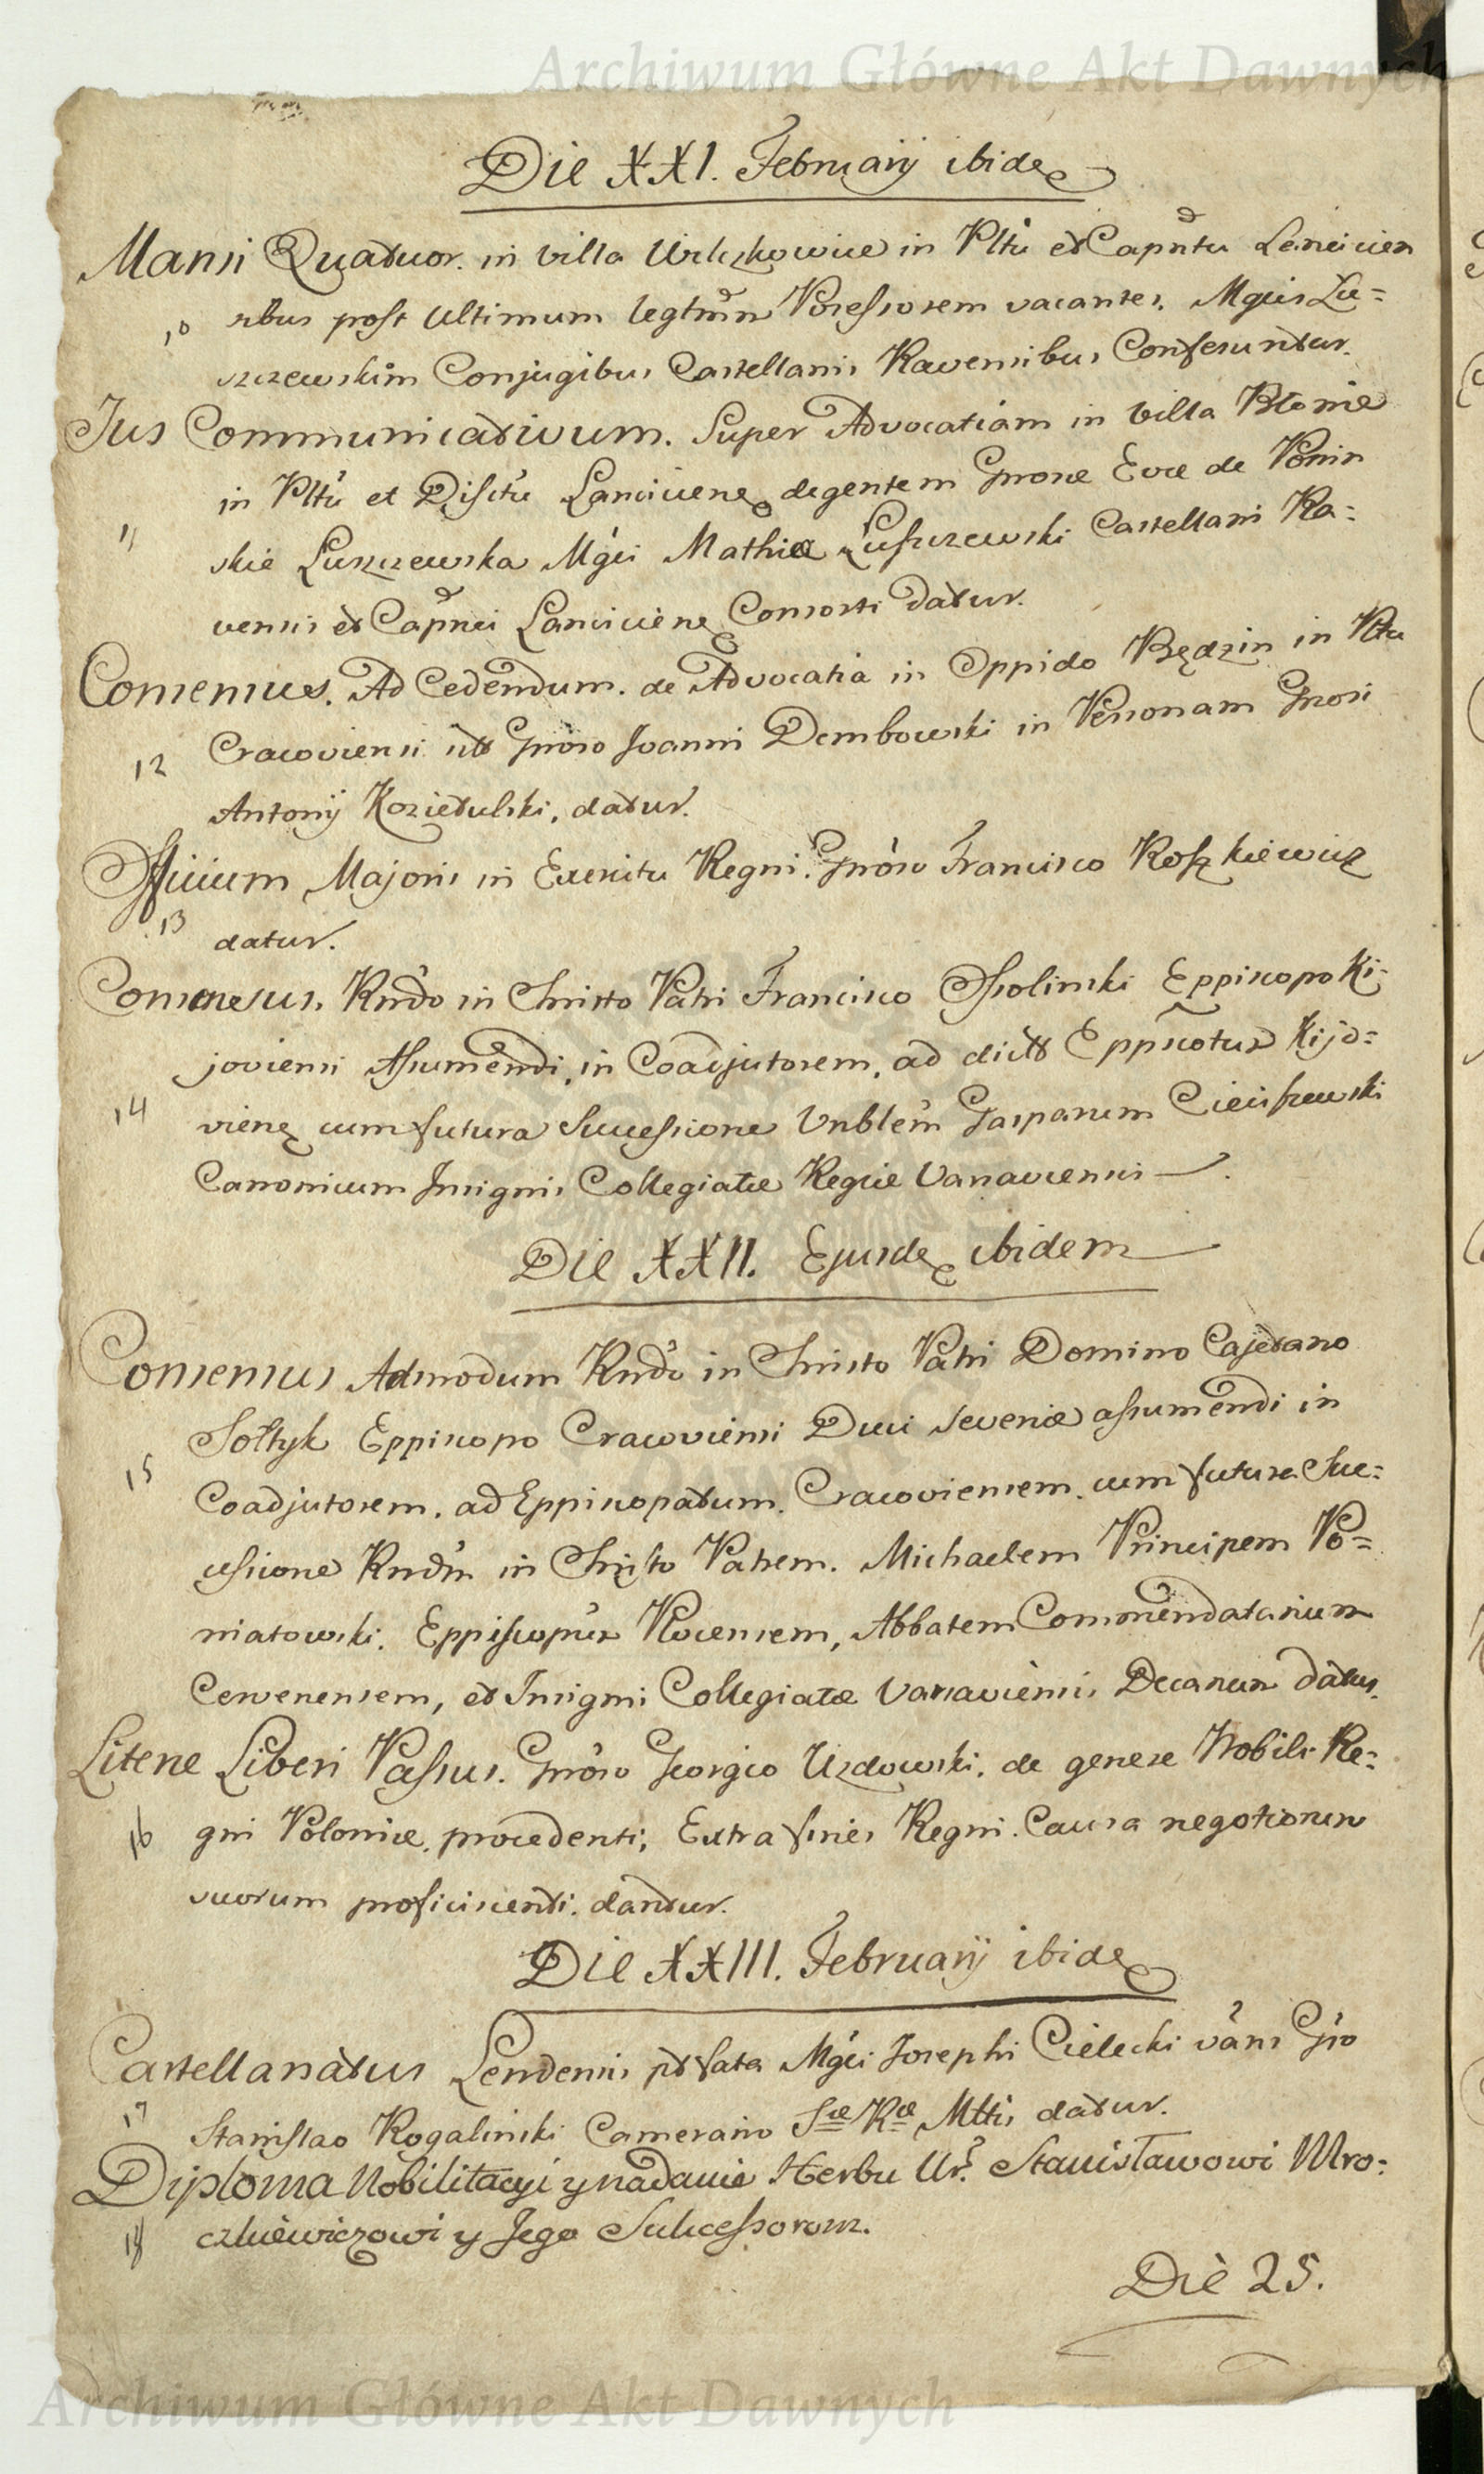 Archiwum Główne Akt Dawnych
Die XXI. Februarij ibidē
Mansi Quatuor. in villa Wilczkowice in Pltū et Capntu Lancicien
10 sibus post ultimum legtmm Possessorem vacantes. Mgcis Łu=
szczewskim Conjugibus Castellanis Ravensibus Conferuntur.
Jus Communicativum. Super Advocatiam in villa Błonie
in Pltū et Distctū Lanciciene degentem Gnrosæ Evæ de Poniń
11 skie Łuszczewska Mgci Mathiæ Łuszczewski Castellani Ra=
vensis et Capnei Lanciciene Consorti datur.
Consensus. Ad Cedendum. de Advocatia in Oppido Będzin in Pltu
12 Cracoviensi sito Gnroso Joanni Dembowski in Personam Gnrosi
Antonij Kozietulski, datur.
Officium Majoris in Exercitu Regni. Gnroso Francisco Roszkiewicz
13 datur.
Consensus, Rndo in Christo Patri Francisco Ossolinski Eppiscopo Ki=
joviensi Assumendi, in Coadjutorem, ad dictū Eppscotum Kijo=
14 viene cum futura Successione Vnblem Gasparum Cieciszewski
Canonicum Insignis Collegiatæ Regiæ Varsaviensis.
Die XXII. Ejusdē ibidem
Consensus Admodum Rndo in Christo Patri Domino Cajetano
15 Sołtyk Eppiscopo Cracoviensi Duci Severiæ assumendi in
Coadjutorem. ad Eppiscopatum. Cracoviensem. cum futura Suc=
cessione Rndm in Christo Patrem. Michaelem Principem Po=
niatowski. Eppiscopum Plocensem, Abbatem Commendatarium
Cervenensem, et Insignis Collegiatæ Varsaviensis Decanum datus.
Literæ Liberi Passus. Gnroso Georgio Uzdowski. de genere Nobili Re=
16 gni Poloniæ, procedenti, Extra fines Regni. Causa negotiorum
suorum proficiscendi. dantur.
Die XXIII. Februarij ibidē
Castellanatus Lendensis pt fata Mgci Josephi Cielecki vāns Gro
17 Stanislao Rogalinski Camerario Sæ Ræ Mttis datur.
Diploma Nobilitacyi y nadanie Herbu Ur. Stanisławowi Mro=
18 czkiewiczowi y Jego Sukcessorom.
Die 25.
Archiwum Główne Akt Dawnych